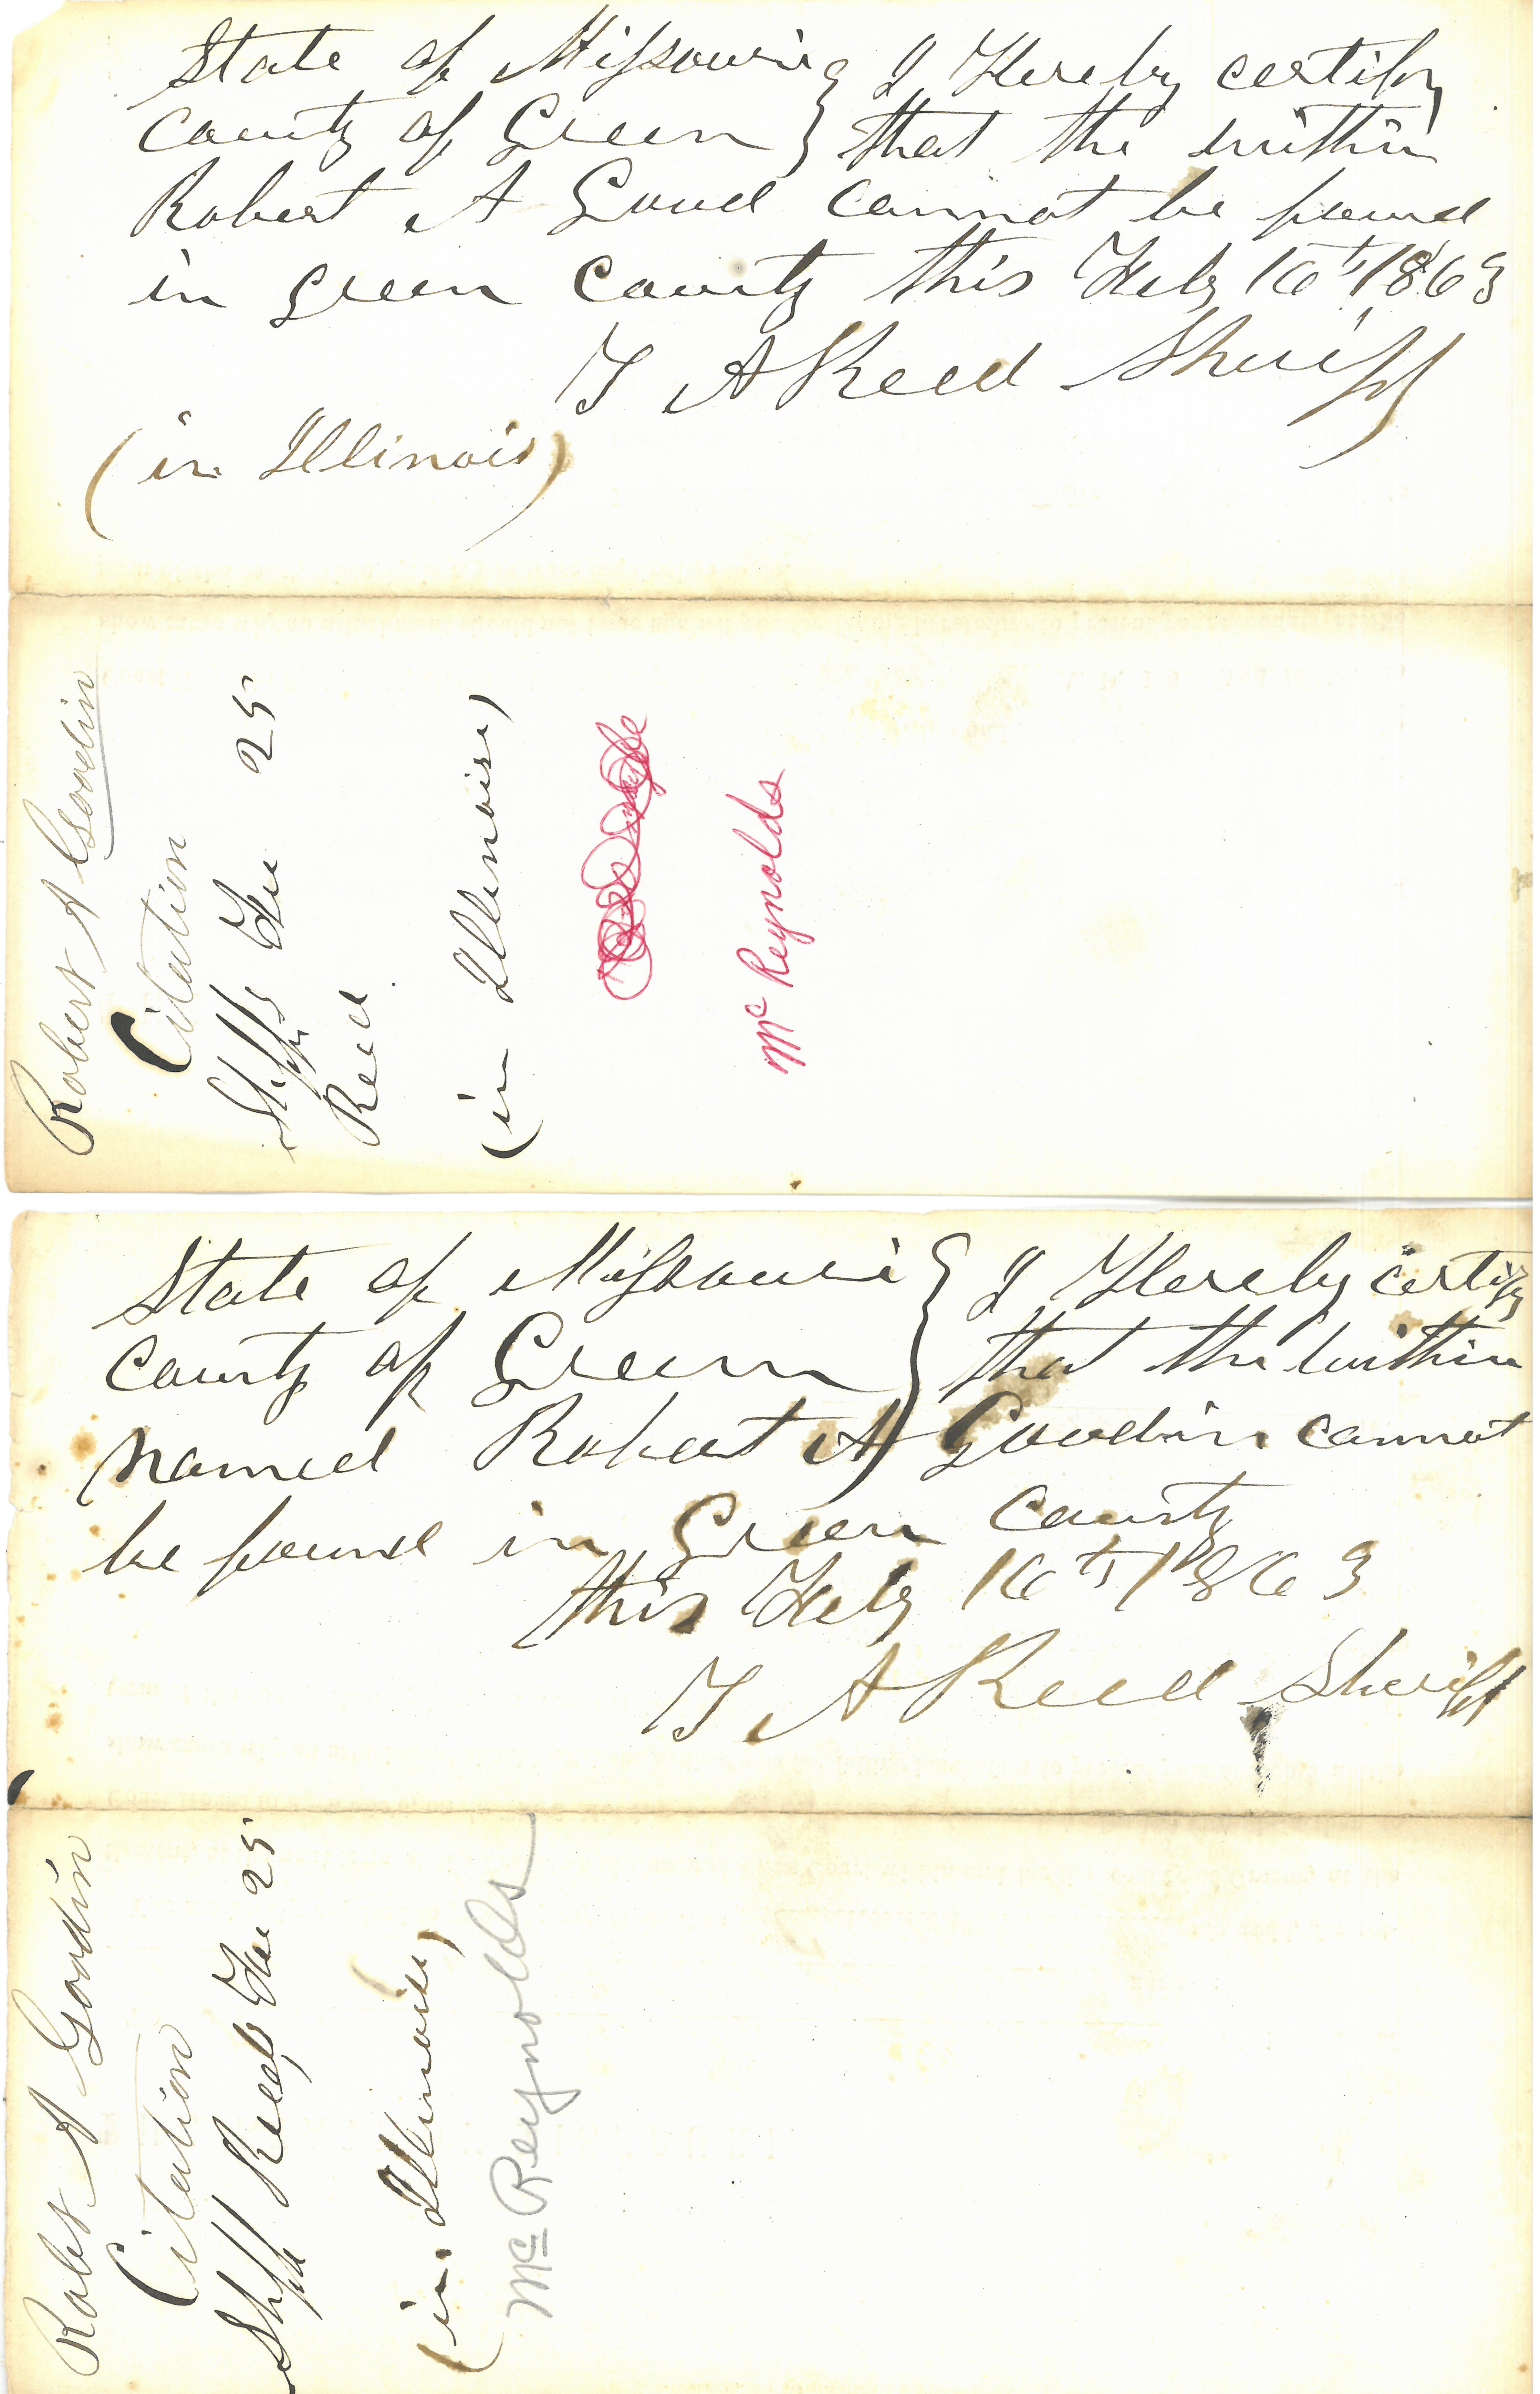 State of Missouri } I Hereby certify
County of Green } that the within
Robert A Good cannot be found
in Green County this Feby 16th 1863
T A Reed Sheriff
(in Illinois)
Robert A Goodin
Citation
Shffs Fee 25
Reed
(in Illinois)
McReynolds
State of Missouri } I Hereby certify
County of Green } that the within
named Robert A Goodin cannot
be found in Green County
this Feby 16th 1863
T A Reed Sheriff
Robt A Goodin
Citation
Shff Reeds Fee 25
(in Illinois)
McReynolds